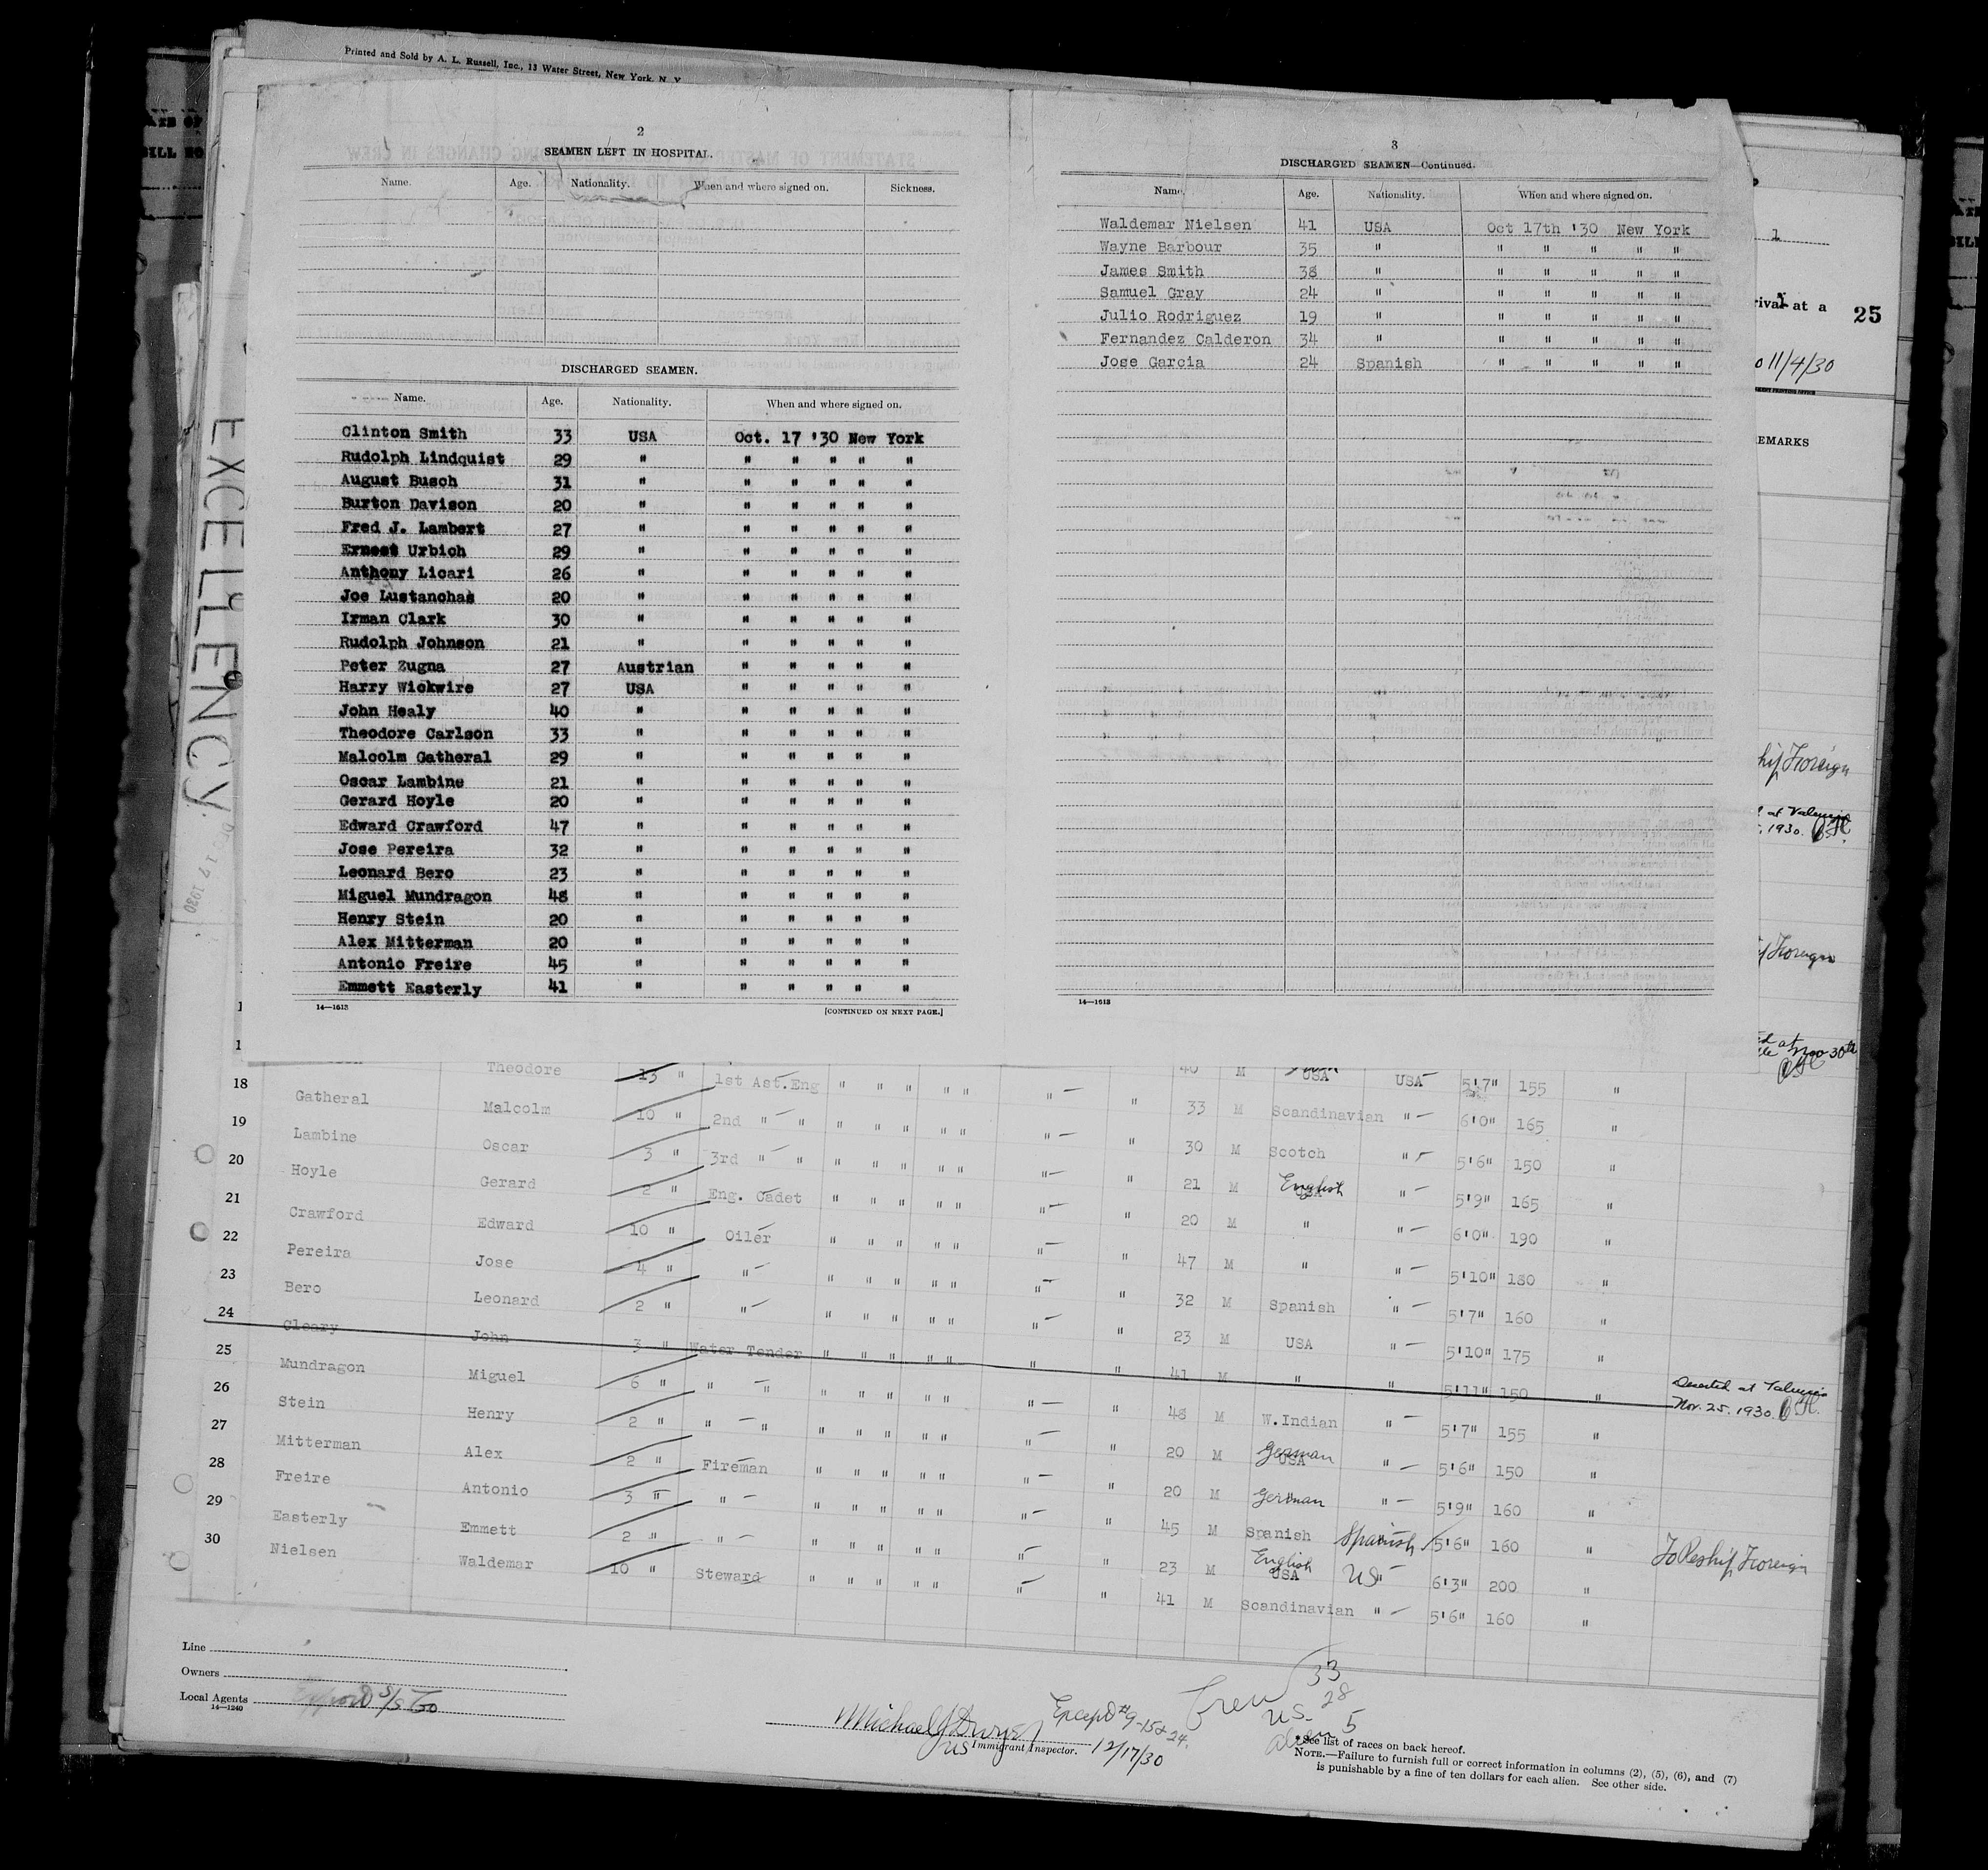 Printed and Sold by A. L. Russell, Inc., 13 Water Street, New York, N. Y.
2
SEAMEN LEFT IN HOSPITAL.
Name. Age. Nationality. When and where signed on. Sickness.
DISCHARGED SEAMEN.
Name. Age. Nationality. When and where signed on.
Clinton Smith 33 USA Oct. 17 '30 New York
Rudolph Lindquist 29 " " " " " "
August Busch 31 " " " " " "
Burton Davison 20 " " " " " "
Fred J. Lambert 27 " " " " " "
Ernest Urbich 29 " " " " " "
Anthony Licari 26 " " " " " "
Joe Lustanchas 20 " " " " " "
Irman Clark 30 " " " " " "
Rudolph Johnson 21 " " " " " "
Peter Zugna 27 Austrian " " " " "
Harry Wickwire 27 USA " " " " "
John Healy 40 " " " " " "
Theodore Carlson 33 " " " " " "
Malcolm Gatheral 29 " " " " " "
Oscar Lambine 21 " " " " " "
Gerard Hoyle 20 " " " " " "
Edward Crawford 47 " " " " " "
Jose Pereira 32 " " " " " "
Leonard Bero 23 " " " " " "
Miguel Mundragon 48 " " " " " "
Henry Stein 20 " " " " " "
Alex Mitterman 20 " " " " " "
Antonio Freire 45 " " " " " "
Emmett Easterly 41 " " " " " "
14—1613 [CONTINUED ON NEXT PAGE.]
3
DISCHARGED SEAMEN—Continued.
Name. Age. Nationality. When and where signed on.
Waldemar Nielsen 41 USA Oct 17th '30 New York
Wayne Barbour 35 " " " " " "
James Smith 38 " " " " " "
Samuel Gray 24 " " " " " "
Julio Rodriguez 19 " " " " " "
Fernandez Calderon 34 " " " " " "
Jose Garcia 24 Spanish " " " " "
14—1613
1
rival at a 25
11/4/30
EMARKS
hip Foreign
at Valencia
, 1930.
Foreign
ed at
Nov 30th
EXCELLENCY
DEC 17 1930
Theodore 13 " 1st Ast.Eng " " " " " " " 40 M USA USA 5'7" 155 "
18 Gatheral Malcolm 10 " 2nd " " " " " " " " " 33 M Scandinavian " 6'0" 165 "
19 Lambine Oscar 3 " 3rd " " " " " " " " " 30 M Scotch " 5'6" 150 "
20 Hoyle Gerard 2 " Eng. Cadet " " " " " " " 21 M English USA " 5'9" 165 "
21 Crawford Edward 10 " Oiler " " " " " " " 20 M " " 6'0" 190 "
22 Pereira Jose 4 " " " " " " " " " 47 M " " 5'10" 180 "
23 Bero Leonard 2 " " " " " " " " " 32 M Spanish " 5'7" 160 "
24 Cleary John 3 " Water Tender " " " " " " " 23 M USA " 5'10" 175 "
25 Mundragon Miguel 6 " " " " " " " " " " 41 M " " 5'11" 150 " Deserted at Valencia
Nov. 25, 1930.
26 Stein Henry 2 " " " " " " " " " " 48 M W.Indian " 5'7" 155 "
27 Mitterman Alex 2 " Fireman " " " " " " " 20 M German USA " 5'6" 150 "
28 Freire Antonio 3 " " " " " " " " " 20 M German " 5'9" 160 "
29 Easterly Emmett 2 " " " " " " " " " 45 M Spanish Spanish 5'6" 160 " To Reship Foreign
30 Nielsen Waldemar 10 " Steward " " " " " " " 23 M English USA US 6'3" 200 "
41 M Scandinavian " 5'6" 160 "
Line
Owners
Local Agents Export S/S Co
14—1240
Except # 9-15 & 24.
US Immigrant Inspector. 12/17/30
Crew 33
US. 28
Alien 5
* See list of races on back hereof.
NOTE.—Failure to furnish full or correct information in columns (2), (5), (6), and (7)
is punishable by a fine of ten dollars for each alien. See other side.